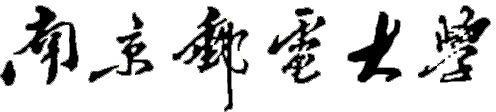 南京郵電大學